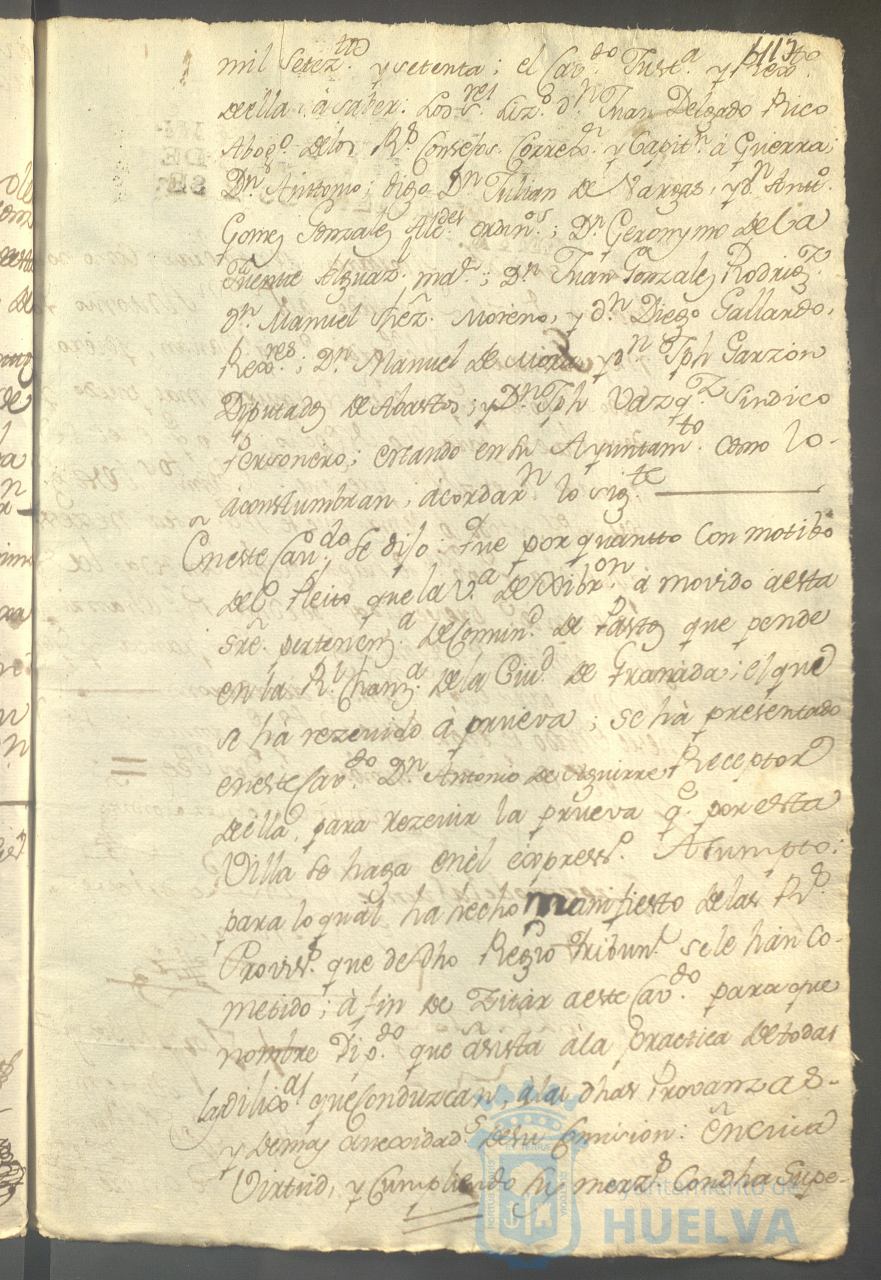 117
mil setez.tos y setenta; el Cav.do Just.a y Rex.to
de ella, â saber: Los S.res Liz.do d.n Juan Delgado Rico
Abog.o delos R.s Consejos Correx.r y Capit.n â Guerra;
D.n Antonio; digo D.n Julian de Vargas, y d.n Ant.o
Gomez Gonzalez Alc.des ordin.s; D.n Geronymo de la
Fuente Alguaz.l ma.r; D.n Juan Gonzalez Rodrig.z
d.n Manuel Shẽz. Moreno, y d.n Diego Gallardo,
Rex.res; D.n Manuel de Mora, y d.n Jph Garzon
Diputados de Abastos; y D.n Jph Vazq.z Sindico
Personero; estando en su Ayuntam.to como lo
acostumbran, acordar.n lo sig.te
En este Cav.do se dijo: Que por quantto con motibo
del Pleito que la V.a de Xibr.on â movido a esta
sre. pertenenz.a de Comun.d de Pastos que pende
en la R.l Chanz.a de la Ciu.d de Granada; el que
se ha rezevido â prueva; se hà presentado
en este Cav.do D.n Antonio de Aguirre Receptor
de ella, para rezevir la prueva q.e por esta
Villa se haga en el expres.do Asumpto:
para lo qual ha hecho manifiesto de las R.s
Provis.s que de dho Regio Tribun.l se le han co-
metido; à fin de Zitàr a este Cav.do para que
nombre Dip.do que asista âla practica de todas
las dilix.as que Conduzcan, â las dhas Provanzas
y demas anexidad.s de su Comision: En cuia
Virtud, y Cumpliendo sus merz.s Con dha Supe-
Ayuntamiento de
HUELVA